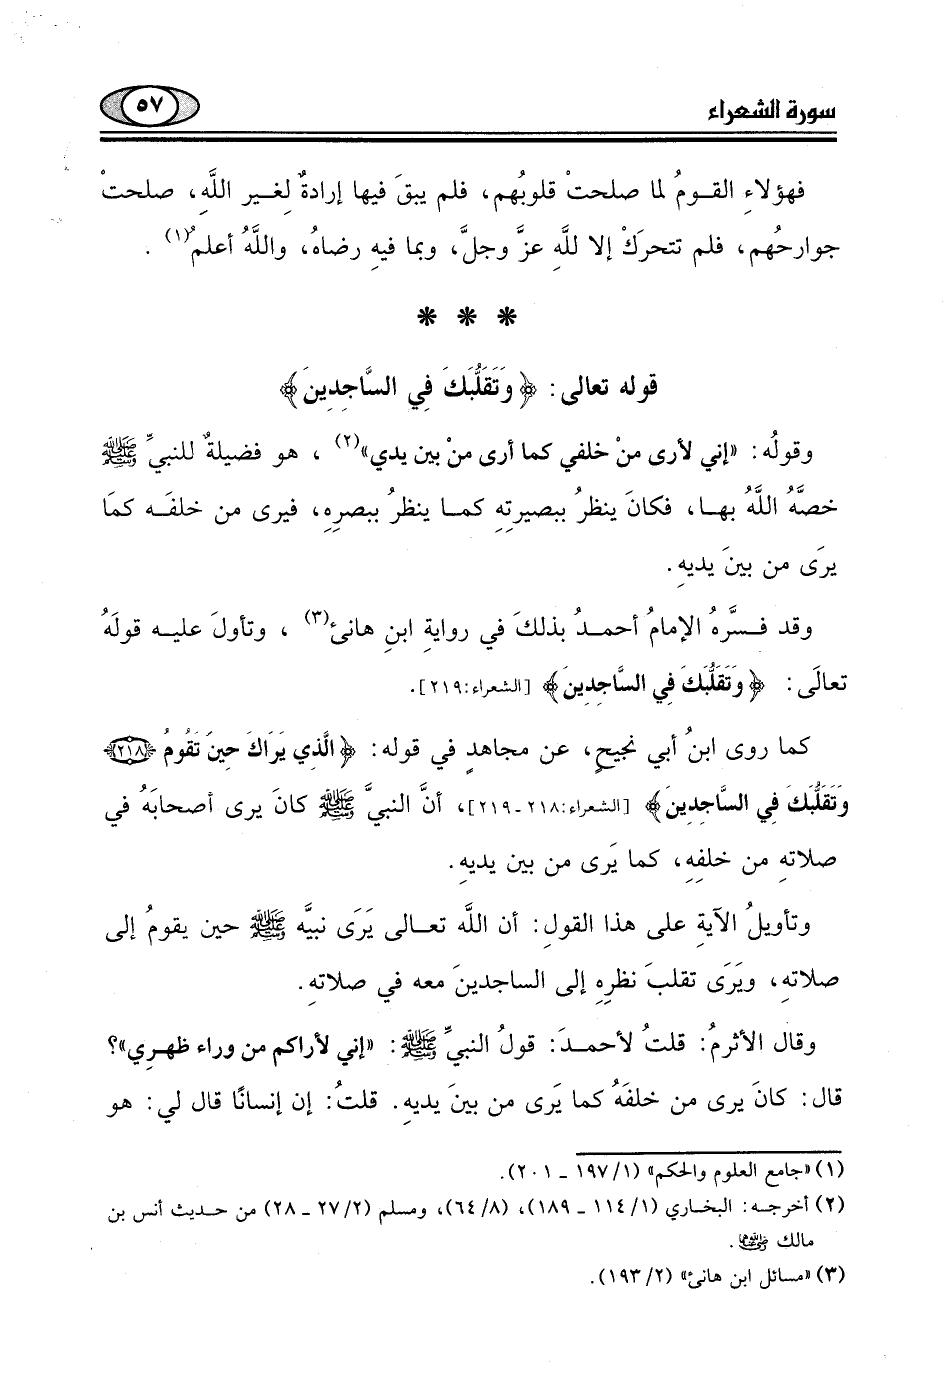 سورة الشعراء ٥٧
فهؤلاءِ القـومُ لما صلحتْ قلوبُهم، فلم يبقَ فيها إرادةٌ لِغـيرِ اللَّهِ، صلحتْ
جوارحُهم، فلم تتحركْ إلا للَّهِ عزَّ وجلَّ، وبما فيهِ رضاهُ، واللَّهُ أعلمُ(١) .
* * *
قوله تعالى: ﴿ وَتَقَلُّبَكَ فِي السَّاجِدِينَ ﴾
وقولُه: «إني لأرى منْ خلفي كما أرى منْ بين يدي»(٢) ، هو فضيلةٌ للنبيِّ ﷺ
خصَّهُ اللَّهُ بهـا، فكانَ ينظرُ ببصيرتِهِ كمـا ينظرُ ببصرِهِ، فيرى من خلفَـه كمَا
يرَى من بينَ يديهِ.
وقد فـسَّرهُ الإمامُ أحمـدُ بذلكَ في روايةِ ابنِ هانئ(٣) ، وتأولَ عليـه قولَهُ
تعالَى: ﴿ وَتَقَلُّبَكَ فِي السَّاجِدِينَ ﴾ [الشعراء:٢١٩].
كما روى ابنُ أبي نجيحٍ، عن مجاهدٍ في قوله: ﴿ الَّذِي يَرَاكَ حِينَ تَقُومُ ﴿٢١٨﴾
وَتَقَلُّبَكَ فِي السَّاجِدِينَ ﴾ [الشعراء:٢١٨ـ٢١٩]، أنَّ النبيَّ ﷺ كانَ يرى أصحابَهُ في
صلاتِهِ من خلفِهِ، كما يَرى من بين يديهِ.
وتأويلُ الآيةِ على هذا القولِ: أن اللَّه تعـالى يَرَى نبيَّه ﷺ حين يقومُ إلى
صلاتِهِ، ويَرَى تقلبَ نظرِهِ إلى الساجدينَ معه في صلاتِهِ.
وقال الأثرمُ: قلتُ لأحمـدَ: قولُ النبيِّ ﷺ: «إني لأراكم من وراء ظهـرِي»؟
قال: كانَ يرى من خلفَهُ كما يَرى من بينَ يديهِ. قلتُ: إن إنسانًا قال لي: هو
(١) «جامع العلوم والحكم» (١/١٩٧ ـ ٢٠١).
(٢) أخرجـه: البخـاري (١/١١٤ ـ ١٨٩)، (٨/٦٤)، ومسلم (٢/٢٧ ـ ٢٨) من حـديث أنس بن
مالك رضي الله عنه.
(٣) «مسائل ابن هانئ» (٢/١٩٣).